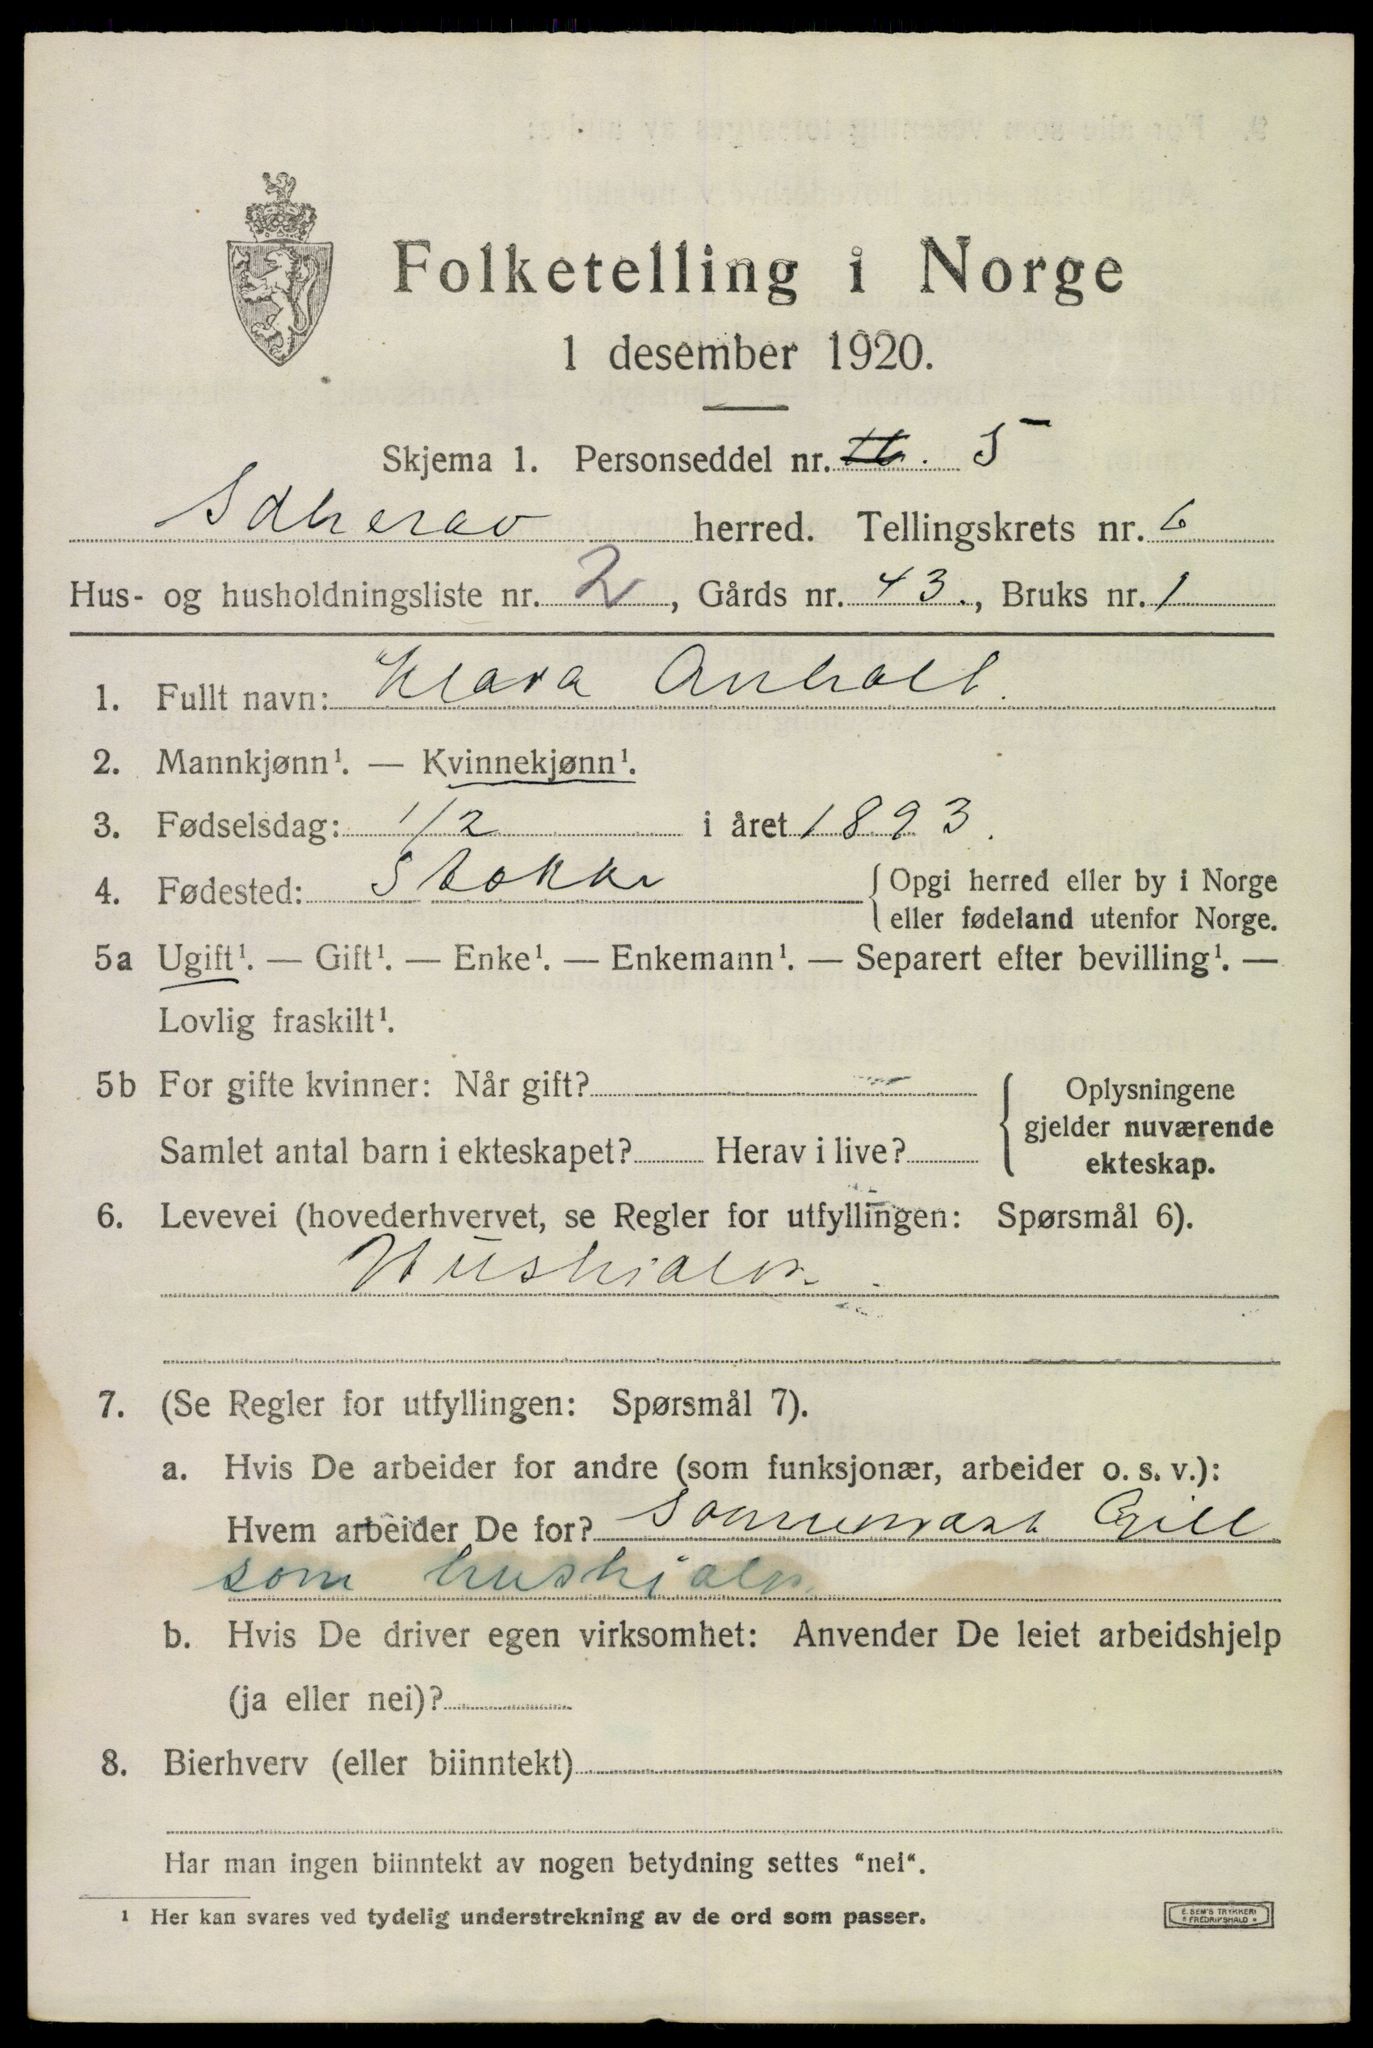 Folketelling i Norge
1 desember 1920.
Skjema 1. Personseddel nr. 5
Sdherav herred. Tellingskrets nr. 6
Hus- og husholdningsliste nr. 2, Gårds nr. 43., Bruks nr. 1
1. Fullt navn: Klara Anholt.
2. Mannkjønn¹. — Kvinnekjønn¹.
3. Fødselsdag: 1/2 i året 1893.
4. Fødested: Stokke {Opgi herred eller by i Norge
eller fødeland utenfor Norge.
5a Ugift¹. — Gift¹. — Enke¹. — Enkemann¹. — Separert efter bevilling¹. —
Lovlig fraskilt¹.
5b For gifte kvinner: Når gift?
Samlet antal barn i ekteskapet? Herav i live?
{Oplysningene
gjelder nuværende
ekteskap.
6. Levevei (hovederhvervet, se Regler for utfyllingen: Spørsmål 6).
Hushjelp.
7. (Se Regler for utfyllingen: Spørsmål 7).
a. Hvis De arbeider for andre (som funksjonær, arbeider o. s. v.):
Hvem arbeider De for?
som hushjelp.
b. Hvis De driver egen virksomhet: Anvender De leiet arbeidshjelp
(ja eller nei)?
8. Bierhverv (eller biinntekt)
Har man ingen biinntekt av nogen betydning settes "nei".
¹ Her kan svares ved tydelig understrekning av de ord som passer.
E. SEM'S TRYKKERI
FREDRIKSHALD